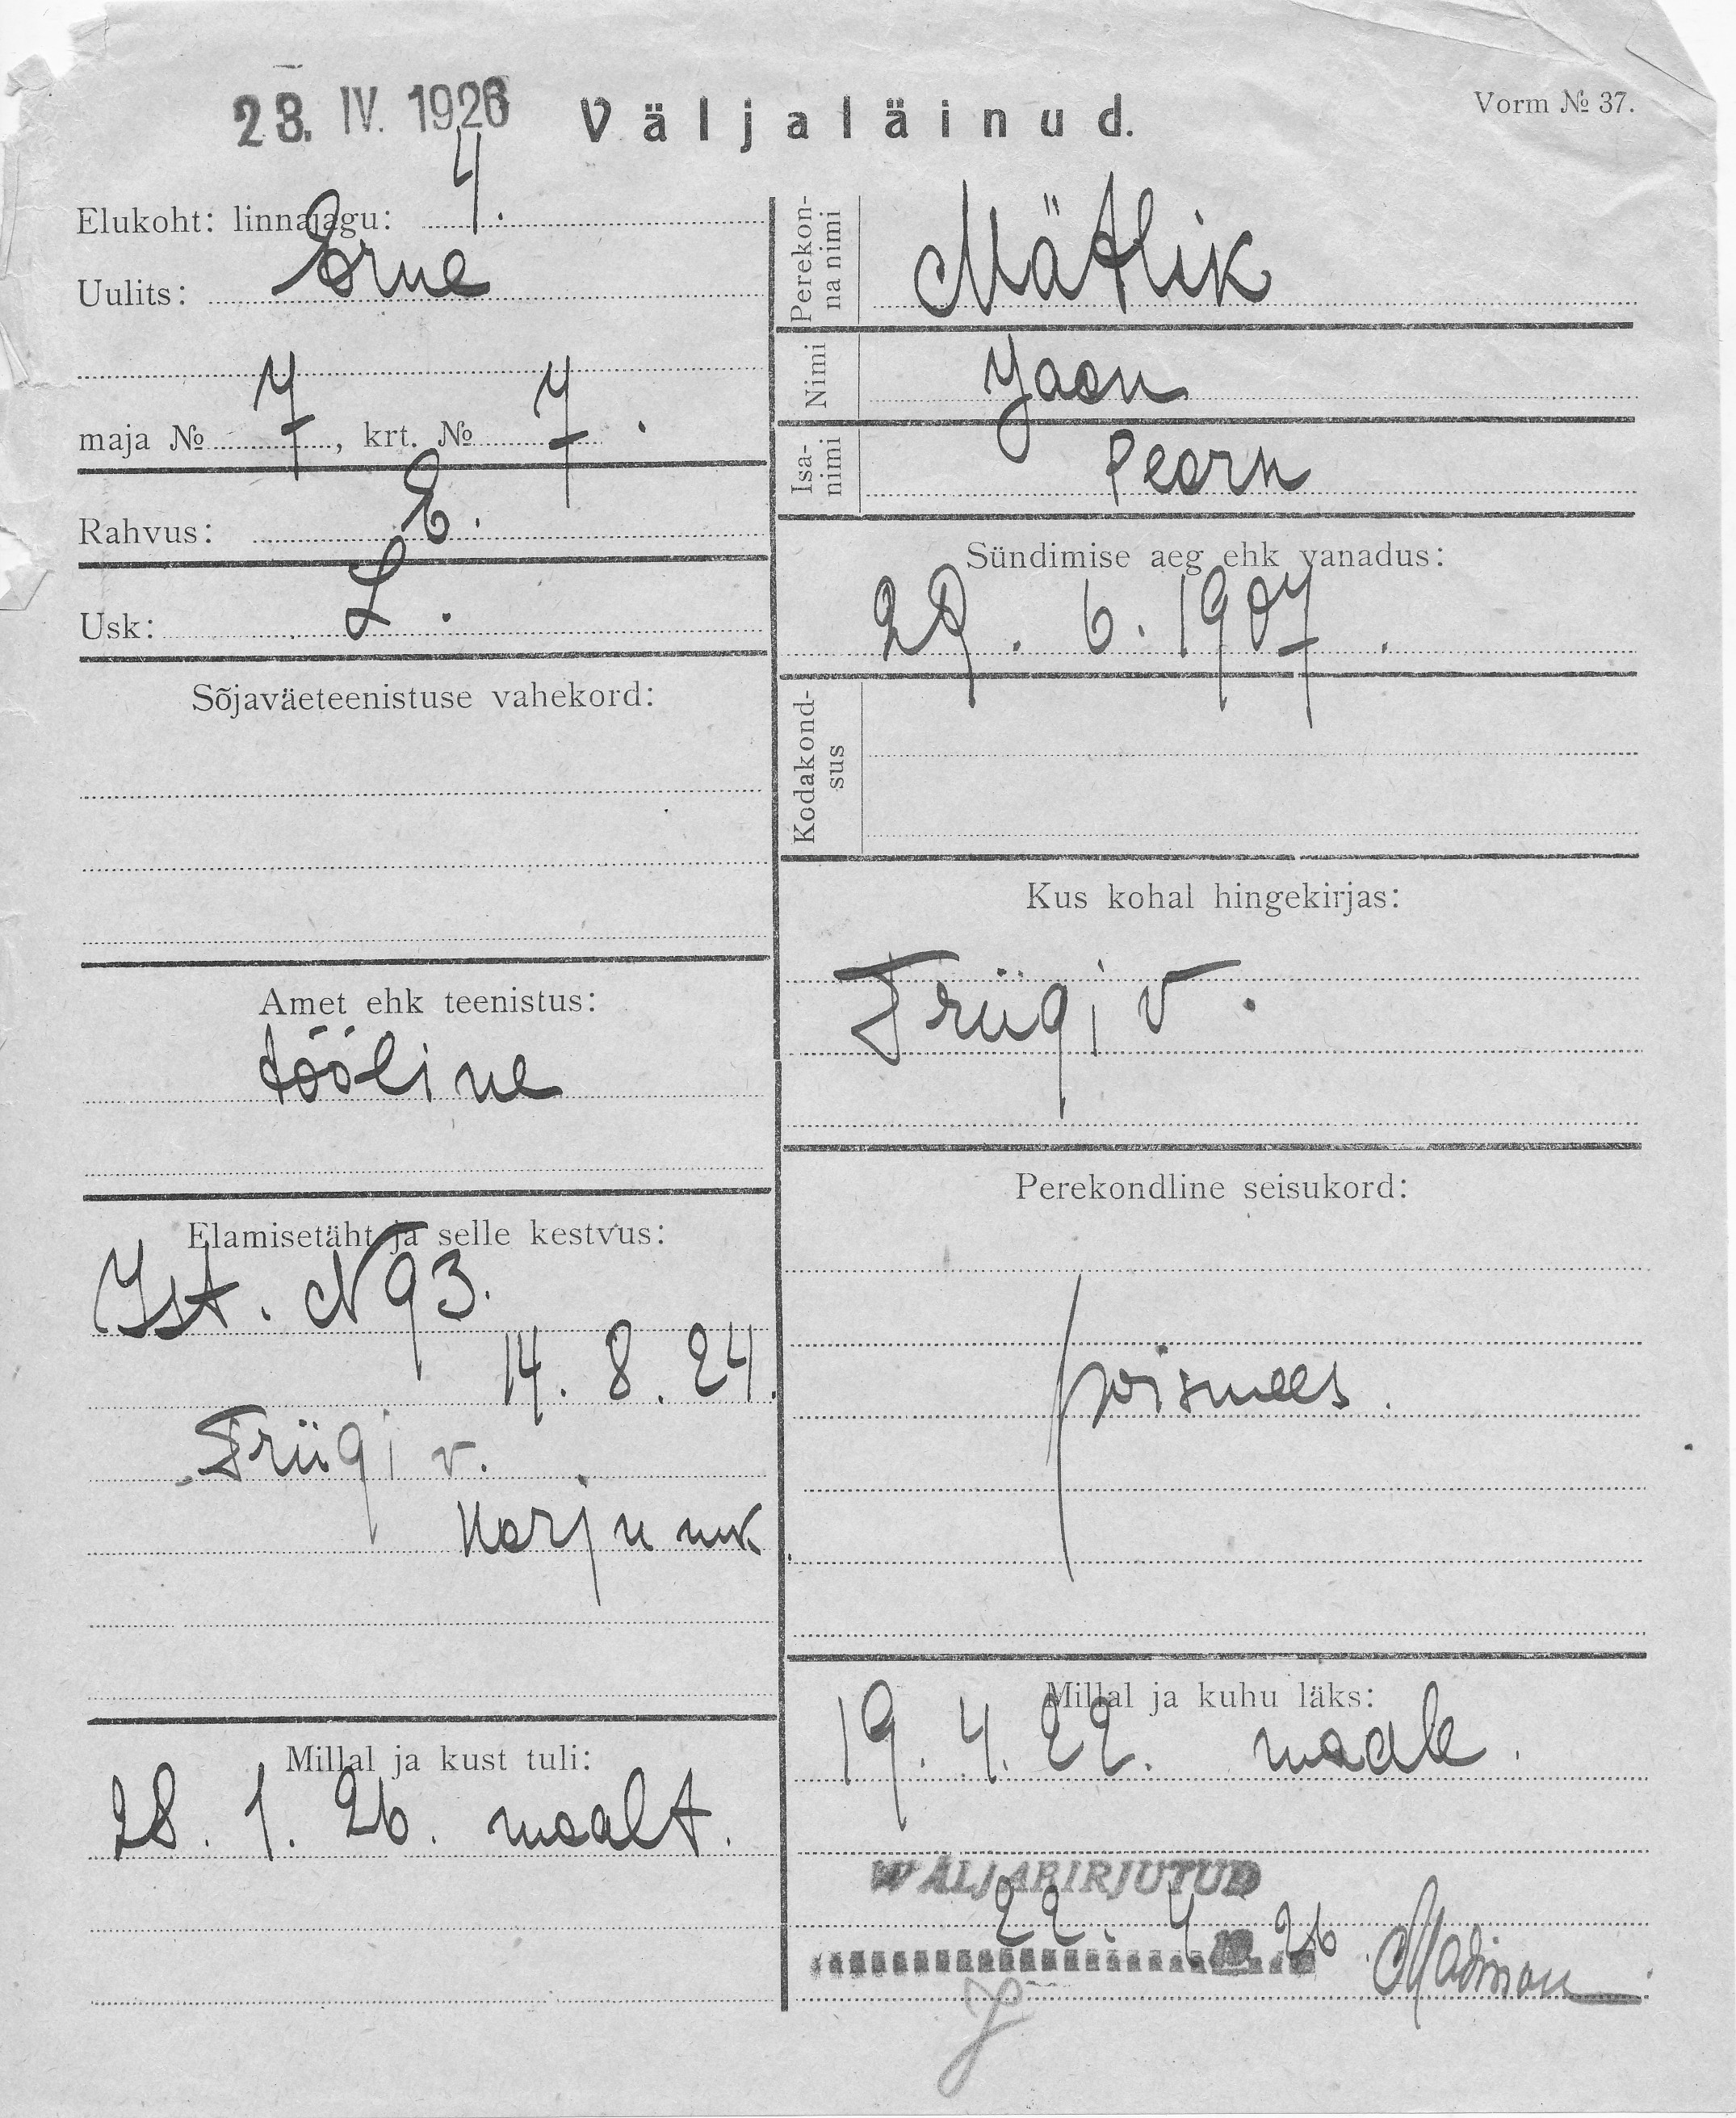 23. IV. 1926 Väljaläinud. Vorm № 37.
Elukoht: linnajagu: 4.
Uulits: Erne
maja № 7, krt. № 7.
Rahvus: E.
Usk: L.
Sõjaväeteenistuse vahekord:
Amet ehk teenistus:
tööline
Elamisetäht ja selle kestvus:
Ist. N 93.
14. 8. 24.
Früügi v.
Harju mk.
Millal ja kust tuli:
28. 1. 26. maalt.
Perekon-
na nimi
Mätlik
Nimi
Jaan
Isa-
nimi
Pearn
Sündimise aeg ehk vanadus:
29. 6. 1907.
Kodakond-
sus
Kus kohal hingekirjas:
Triigi v.
Perekondline seisukord:
poismees.
Millal ja kuhu läks:
19. 4. 22. maale.
WÄLJAKIRJUTUD
22. 4. 26